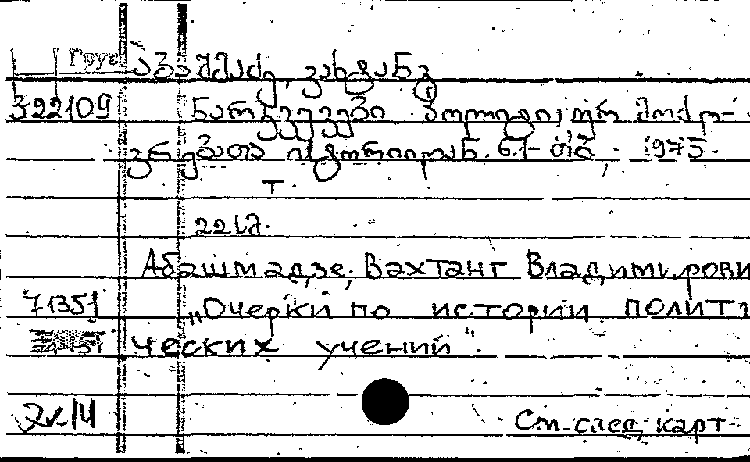 Груз
აბაშმაძე, ვახტანგ
322109 ნარკვევები პოლიტიკურ მოძღ-
ვრებათა ისტორიიდან. ნ. 1- თბ., 1975.
т.
221გ.
Абашмадзе, Вахтанг Владимирови
71351 „Очерки по истории полити
ческих учений".
См. след. карт.